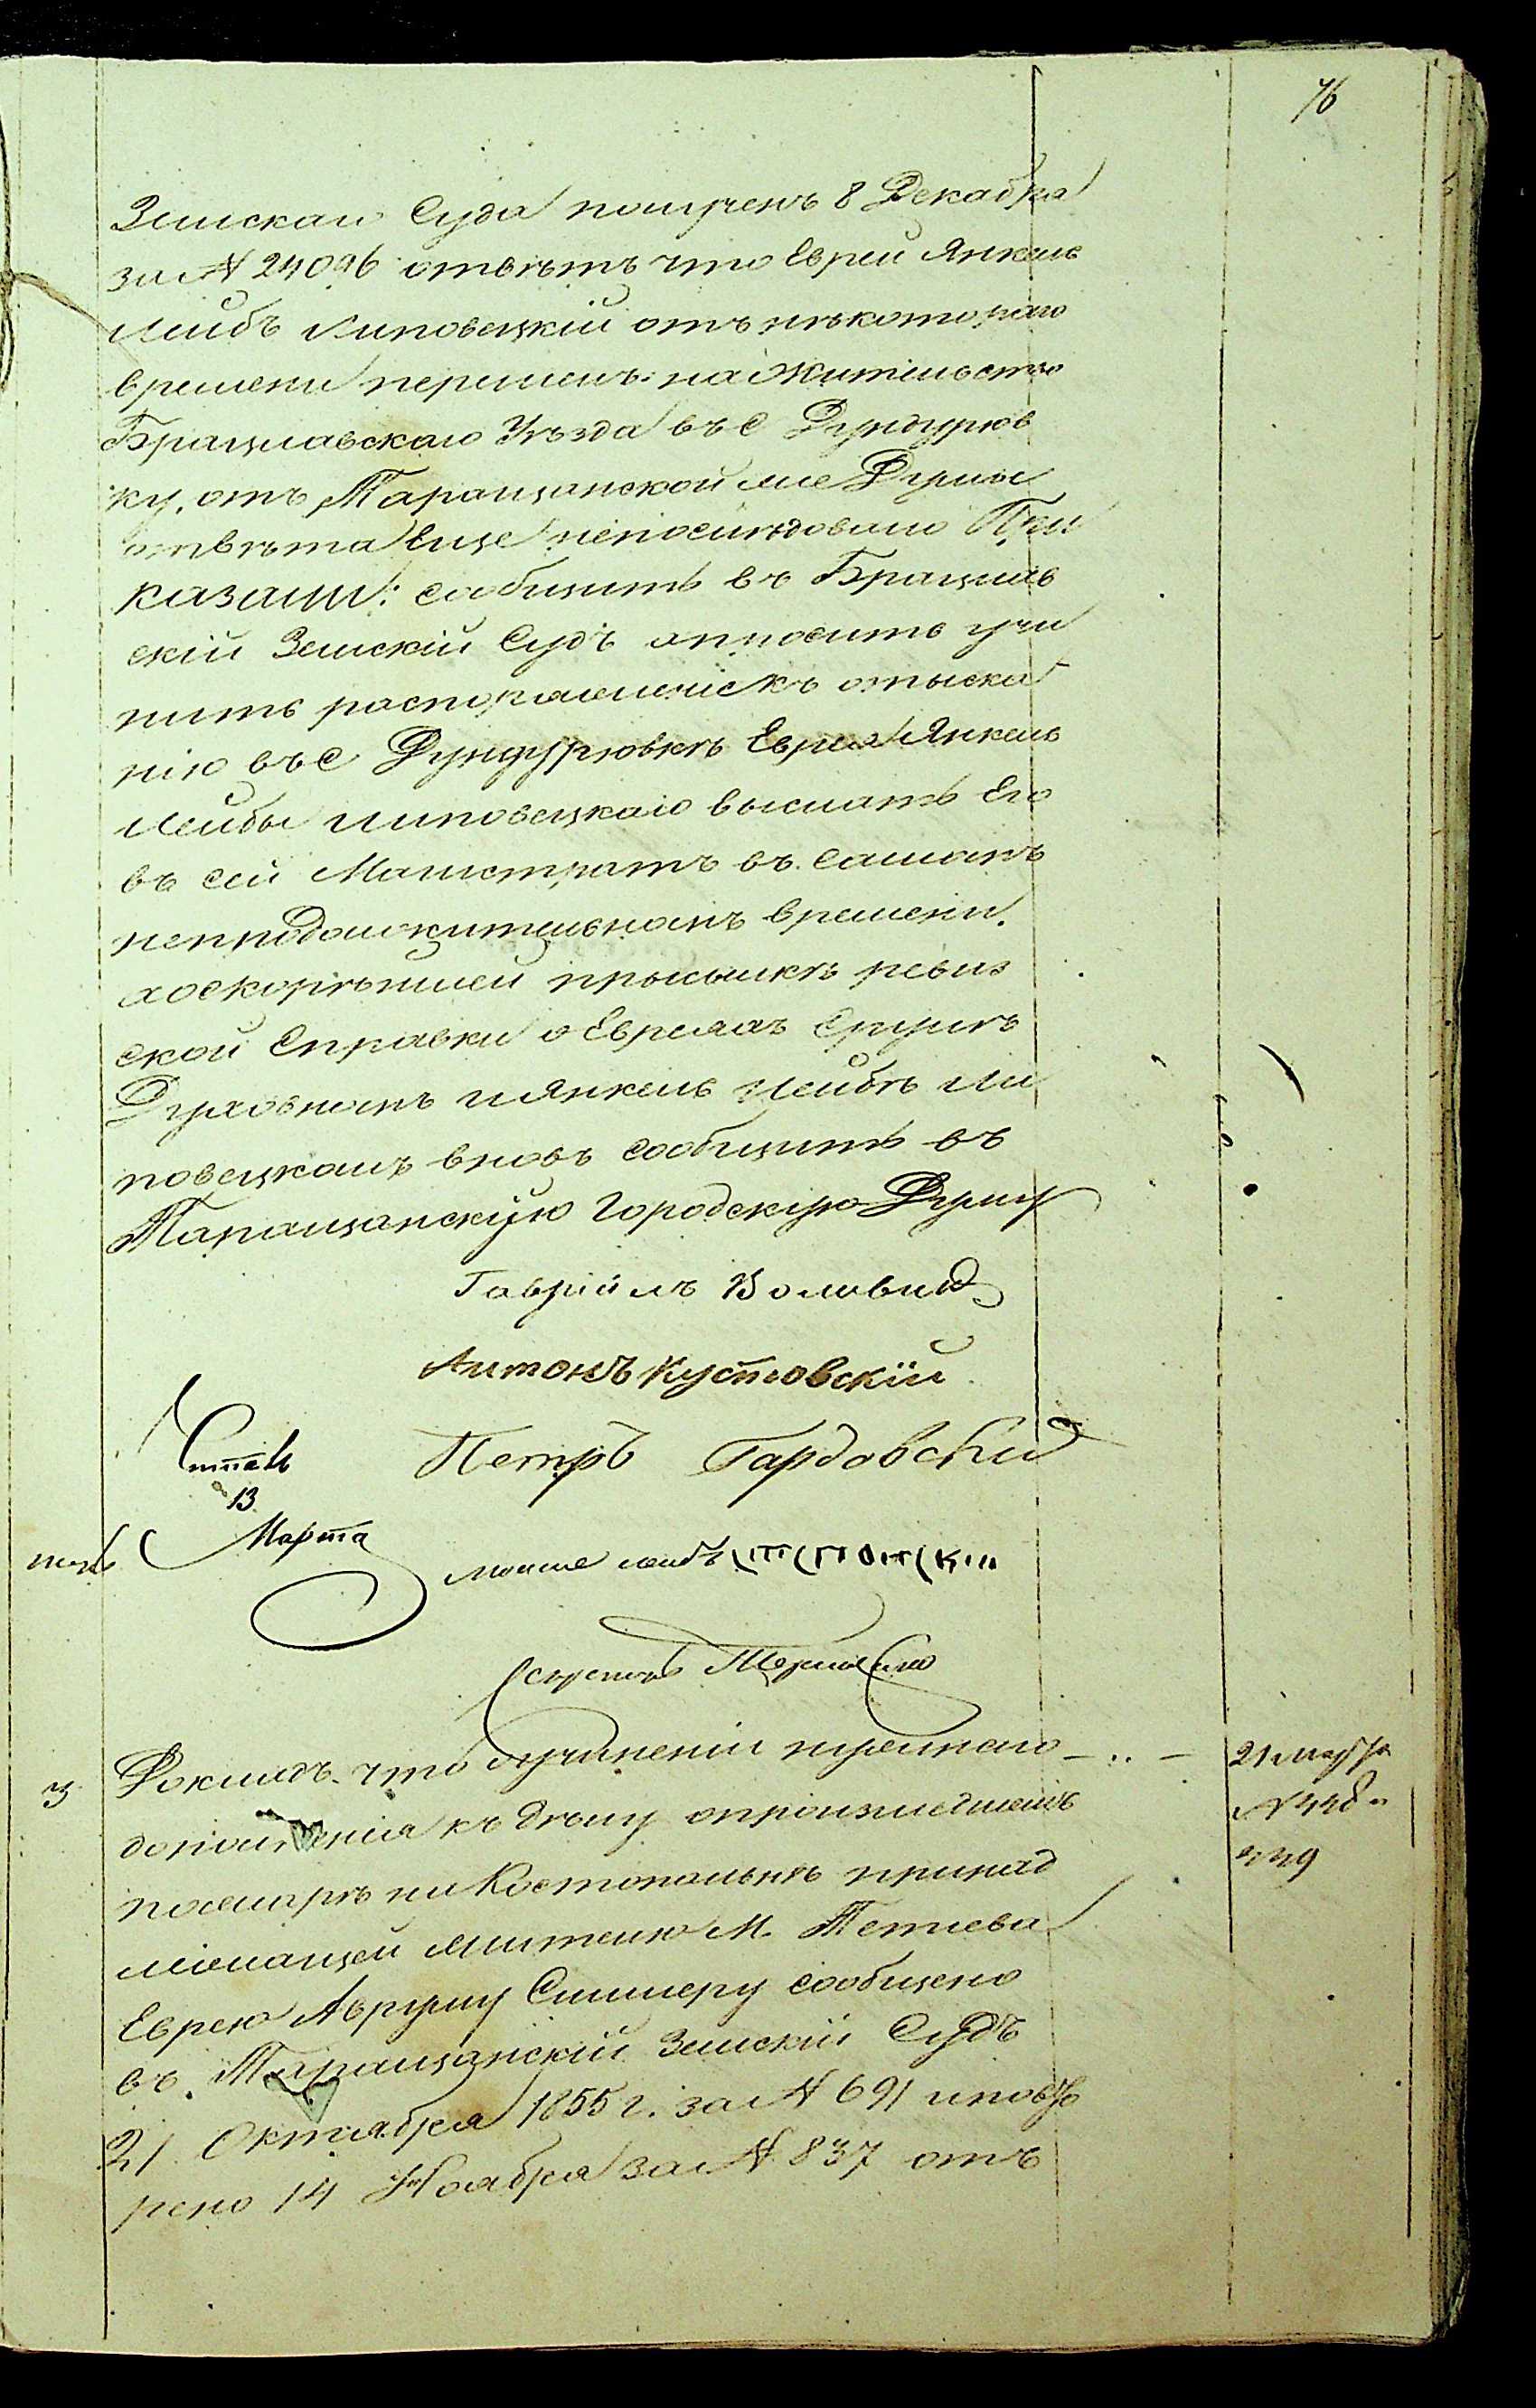 76
Земскаго Суда полученъ 8 Декабря
за № 24096 отвѣтъ что Еврей Янкель
Лейбъ Липовецкій отъ нѣкотораго
времени перешелъ на жительство
Брацлавскаго Уѣзда въ с
ку, отъ Таращанской же Думы
отвѣта еще непослѣдовало При
казали: сообщить въ Брацлав
скій Земскій Судъ и просить учи
нить распоряженіе къ отыска
нію въ с Еврея Янкель
Лейбы Липовецкаго выслать Его
въ сей Магистратъ въ самомъ
непродолжительномъ времени.
а о скорѣйшей присылкѣ ревиз
ской Справки о Евреяхъ Сруль
Духовномъ и Янкель Лейбѣ Ли
повецкомъ вновь сообщить въ
Таращанскую Городскую Думу
Гавріилъ
Антонъ Кустовскій
Петръ Гардовскій
Читалъ
13
Марта
Мошке Лейбъ
Секретарь
3 Докладъ. что о учиненіи нужнаго
дополненія къ дѣлу о происшедшемъ
пожарѣ на Костопальнѣ принад
лежащей жителю М. Тетіева
Еврею Авруму сообщено
въ Таращанскій Земскій Судъ
21 Октября 1855 г. за № 691 и повто
рено 14 Ноября за № 837 отъ
21 Марта
№ 448 и
449